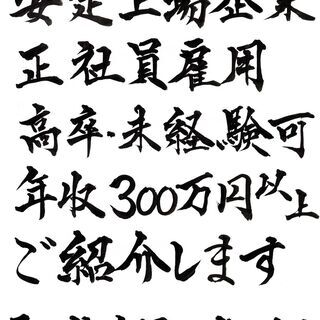 安定上場企業
正社員雇用
高卒・未経験可
年収300万円以上
ご紹介します